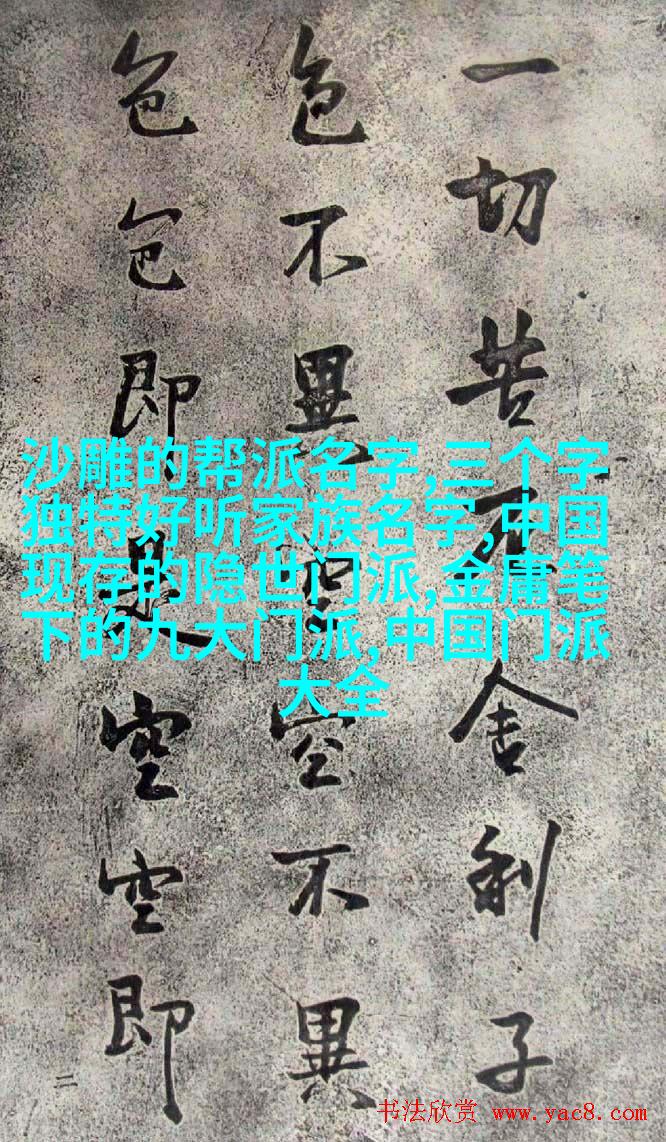 一切苦舍利子
色不異空不異
色色即是空空即
二
沙雕的帮派名字,三个字
独特好听家族名字,中国
现存的隐世门派,金庸笔
下的九大门派,中国门派
大全
书法欣赏 www.yac8.com